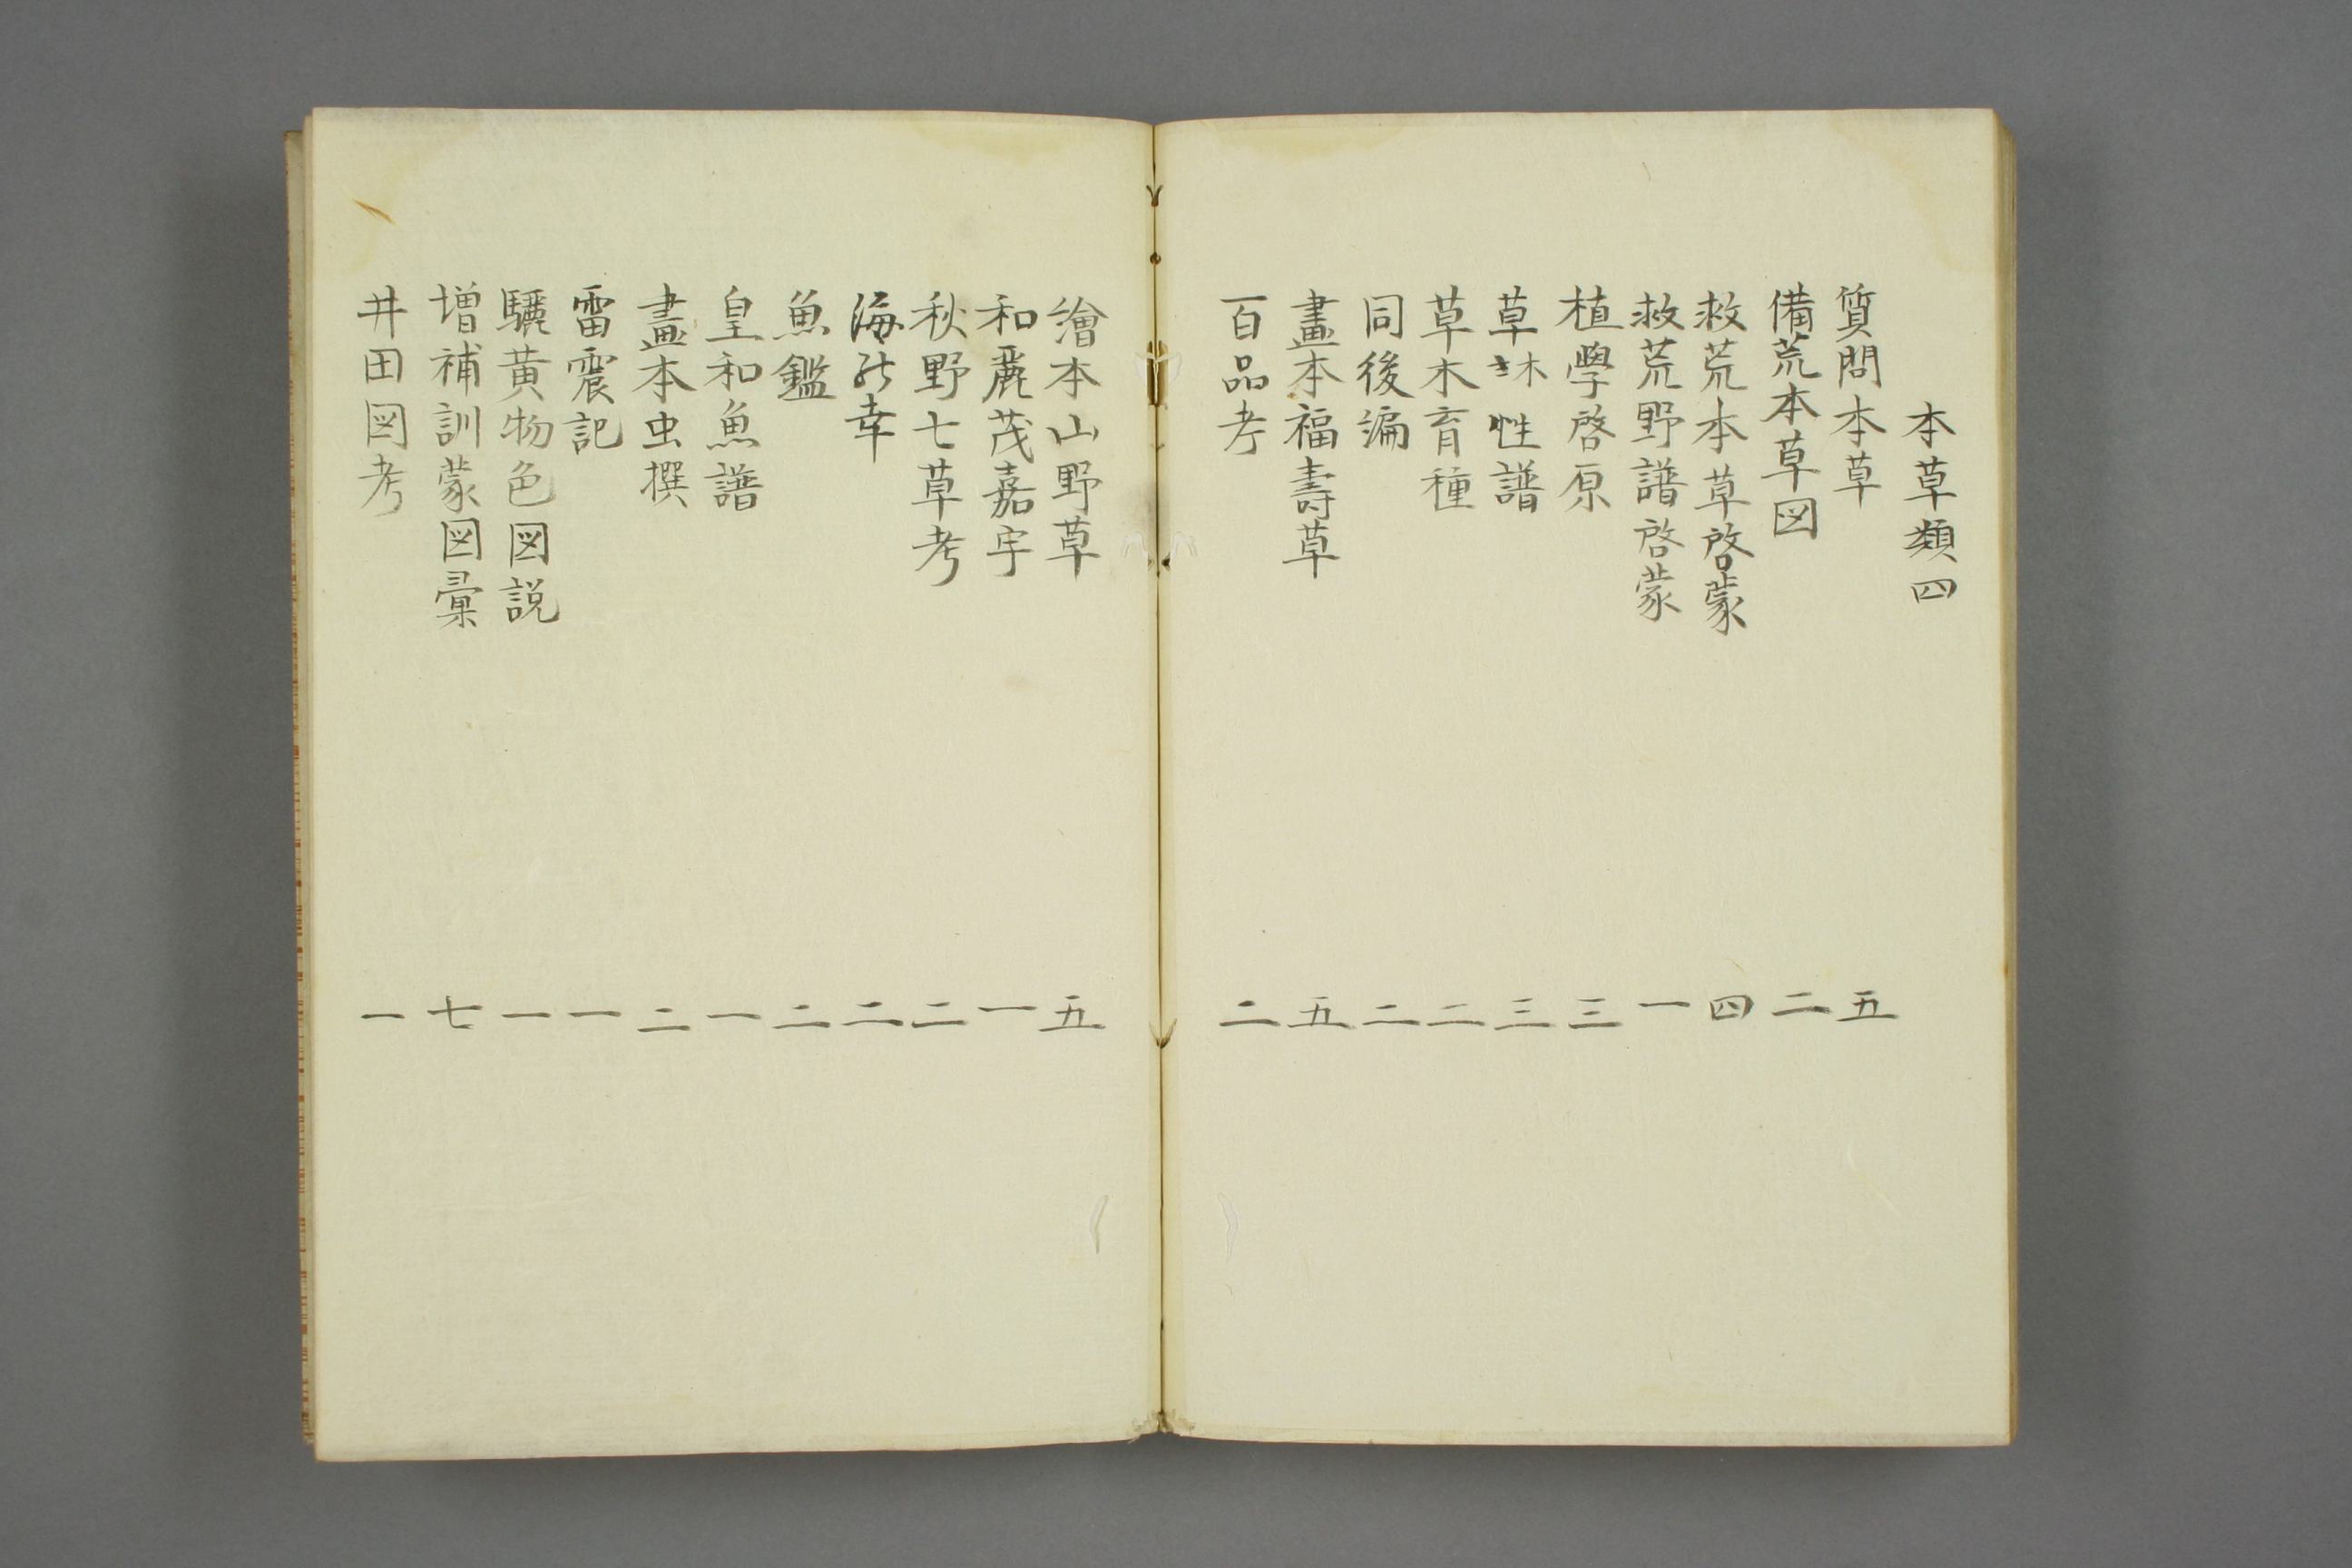 本草類四
質問本草 五
備荒本草図 二
救荒本草啓蒙 四
救荒野譜啓蒙 一
植學啓原 三
草木性譜 三
草木育種 二
同後編 二
畫本福壽草 五
百品考 二
繪本山野草 五
和麗茂嘉宇 一
秋野七草考 二
海の幸 二
魚鑑 二
皇和魚譜 一
畫本虫撰 二
雷震記 一
驪黄物色図説 一
増補訓蒙図彙 七
井田図考 一